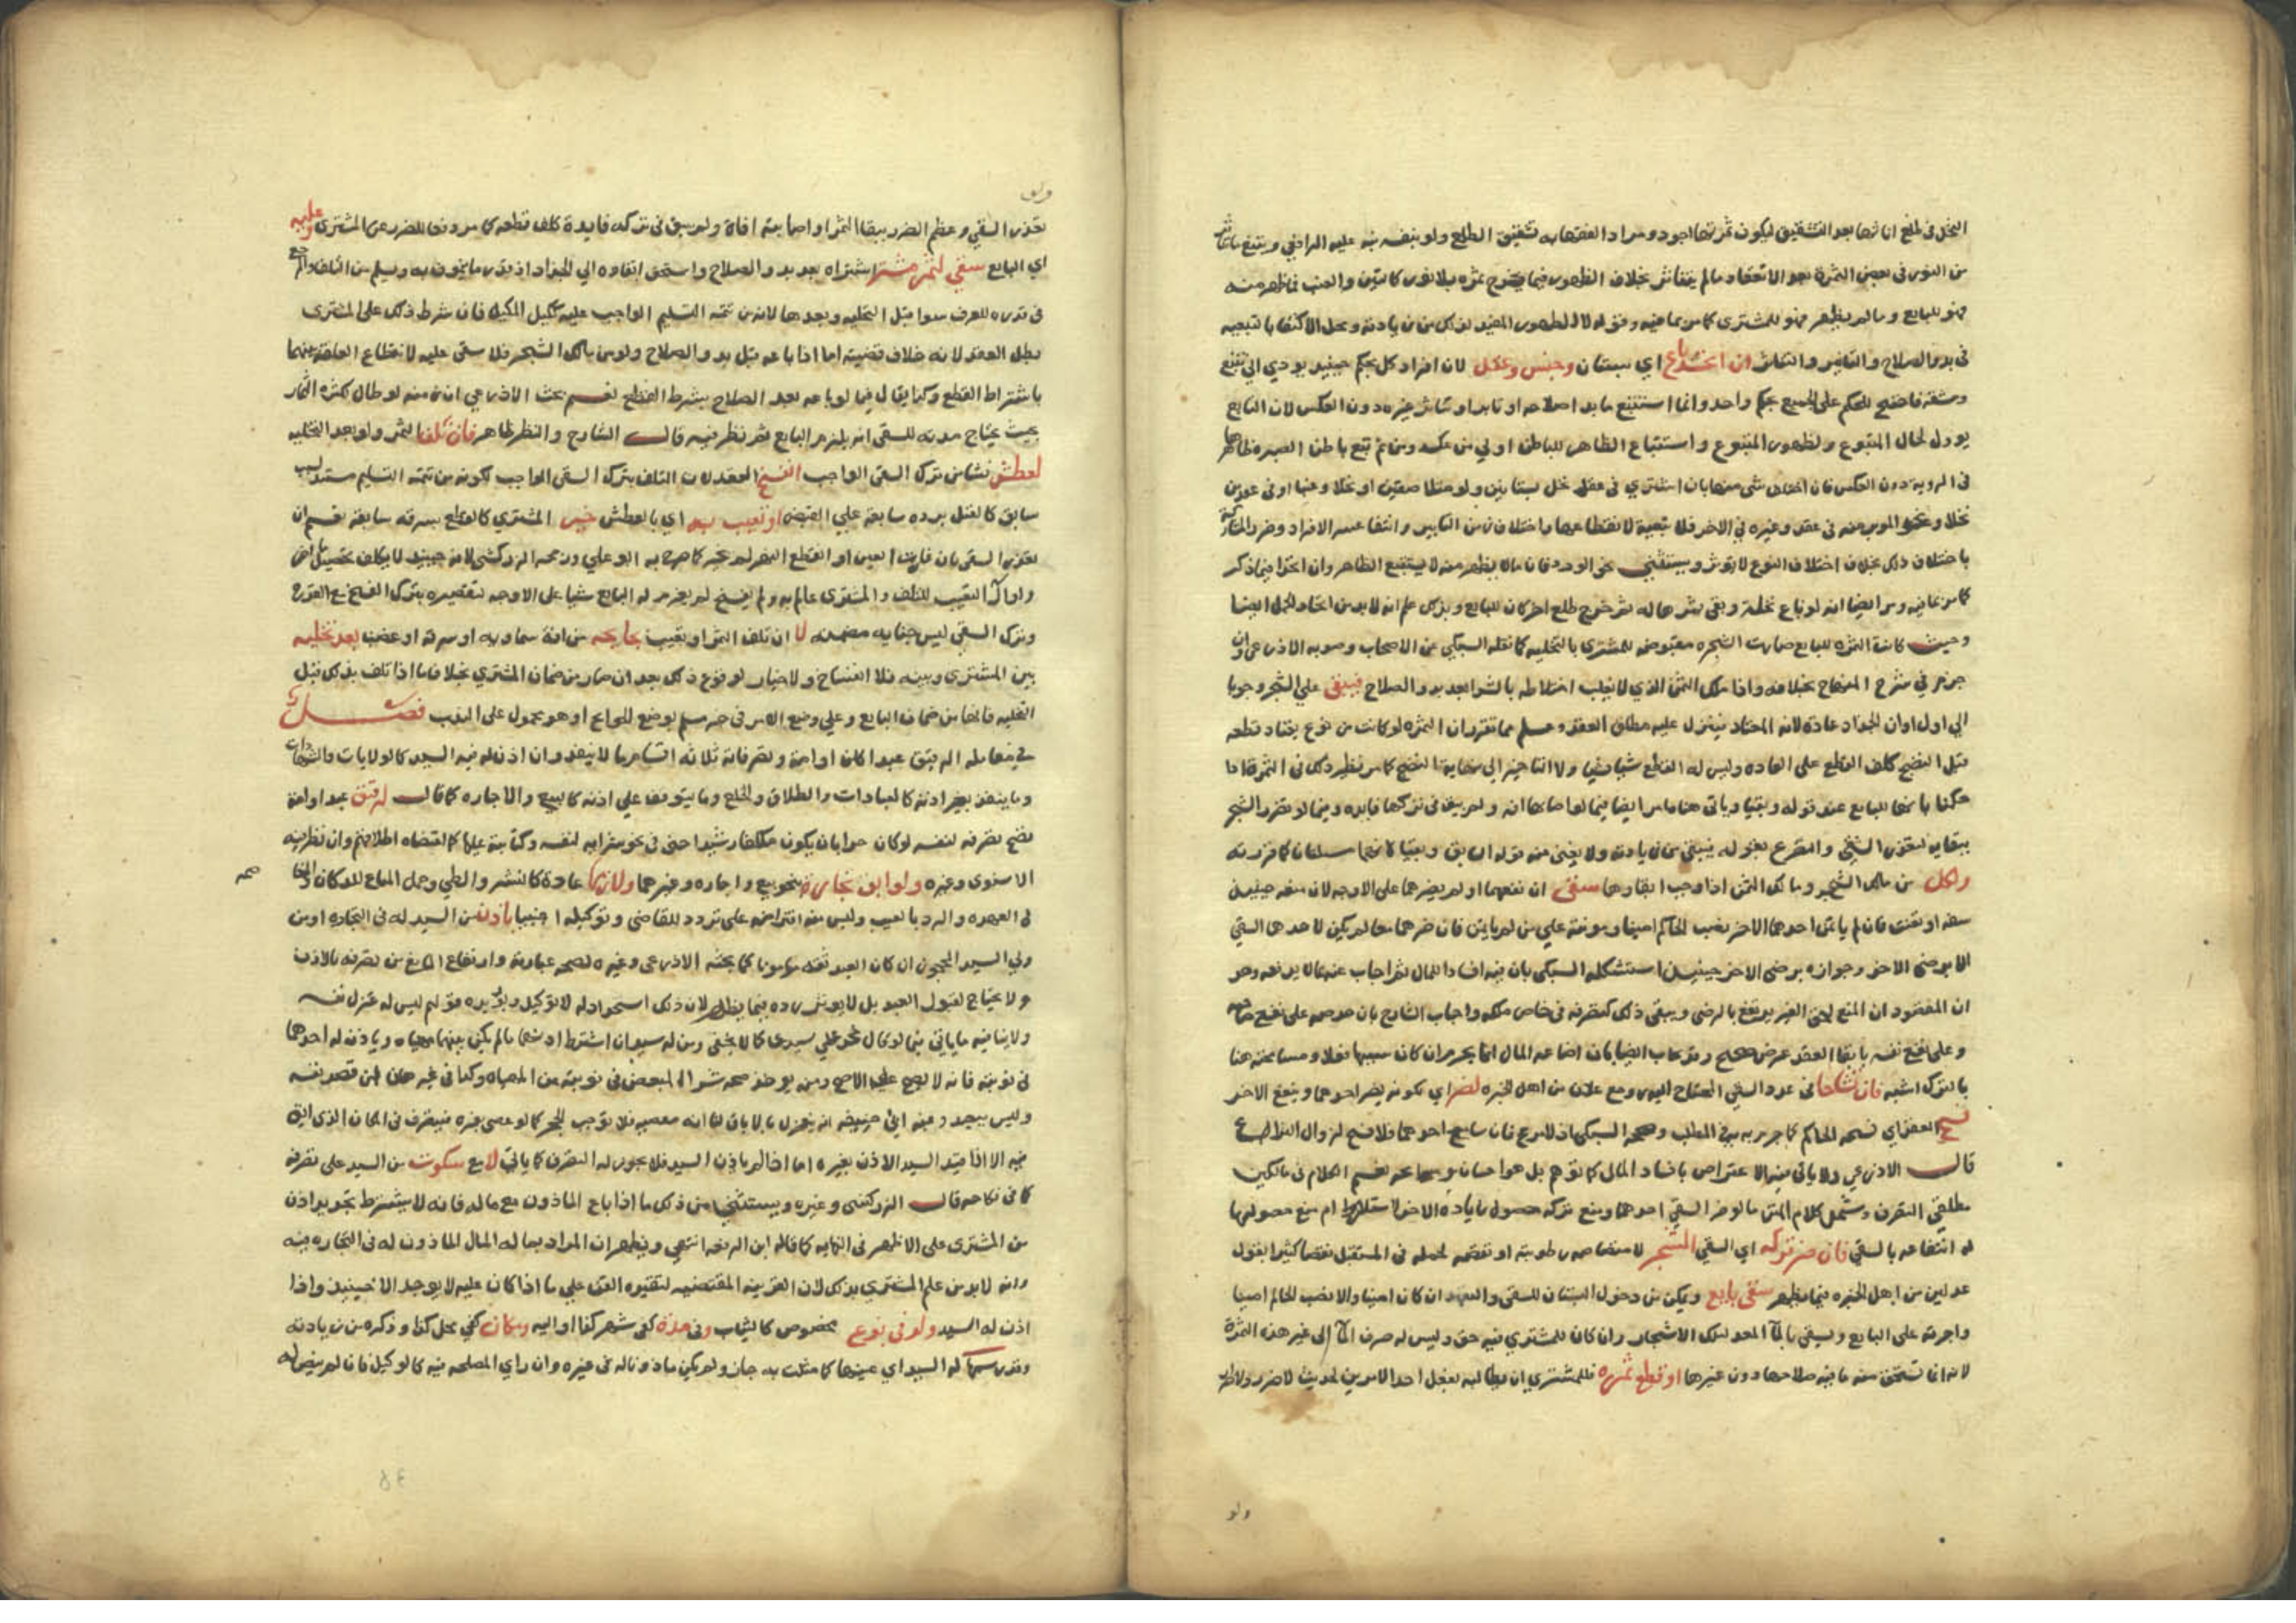 النخل في طلع اناثها بعد التشقيق ليكون ثمرتها اجود ومراد الفقهاء به تشقيق الطلع ولو بنفسه عليه الرافعي ويتبع
من النور في بعض الثمرة نحو الانعقاد ما لم يتناثر بخلاف الظهور فيما يخرج ثمره بلا نور كالتين والعنب فما ظهر منه
فهو للبايع وما لم يظهر فهو للمشتري كما مر بما فيه وقوله لا الظهور المفيد لذلك من زيادته ومحل الاكتفا بالتبعيه
في بدو الصلاح والتابير والتناثر ان اتحد باع اي بستان وجنس وعقد لان افراد كل بحكم حينئذ يودي الى تتبع
ومشقة فاضح للحكم على الجميع بحكم واحد وانما استتبع ما بدا صلاحه او تابر او تناثر غيره دون العكس لان البايع
يوول لحال المتبوع ولظهور المتبوع واستتباع الظاهر للباطن اولي من عكسه ومن ثم تبع باطن الصبره ظاهرها
في الرويه دون العكس فان اختلف شي منها بان اشترى في عقد نخل بستانين ولو متلاصقين او نخلا وعنبا او في عقدين
نخلا ونحو الموبر منه في عقد وغيره في الاخر فلا تبعية لانقطاعها واختلاف زمن التابير وانتفا عسر الافراد وضرر المشاركة
باختلاف ذلك بخلاف اختلاف النوع لا يوثر ويستثنى نحو الورد فان ما لا يظهر منه لا يستتبع الظاهر وان اتحدا فيما ذكر
كما مر بما فيه ومر ايضا انه لو باع نخلة وبقي ثمرها له ثم خرج طلع اخر كان للبايع وبذلك علم انه لابد من اتحاد الحمل ايضا
وحيث كانت الثمره للبايع صارت الشجره مقبوضه للمشتري بالتخليه كما نقله السبكي عن الاصحاب وصوبه الاذرعي وان
جزم في شرح المنهاج بخلافه واذا ملك الثمر الذي لا يغلب اختلاطه بالشرا بعد بدو الصلاح فيبقى على الشجر وجوبا
الى اول اوان الجداد عادة لانه المعتاد فيتنزل عليه مطلق العقد وعلم مما تقرر ان الثمره لو كانت من نوع يعتاد قطعه
قبل النضج كلف القطع على العاده وليس له القطع شيا فشيا ولا التاخير الى نهاية النضج كما مر نظير ذلك في الثمرة اذا
حكمنا بانها للبايع عند قوله وبقيا وياتي هنا ما مر ايضا فيما لو اصابها افة ولم يبق في تركها فايده وفيما لو تضرر الشجر
ببقايه لتعذر السقي والتفرع بقوله فيبقى من زيادته ولا يغني عنه قوله السابق وبقيا لانهما مسلتان كما قررته
ولكل من مالك الشجر ومالك الثمر اذا وجب ابقاوها سقي ان نفعهما او لم يضرهما على الاوجه لان منعه حينئذ
سفه او تعنت فان لم ياتمن احدهما الاخر نصب الحاكم امينا ومونته على من لم ياتمن فان ضرهما معا لم يكن لاحدهما السقي
الا برضى الاخر وجوازه برضى الاخر حينئذ استشكله السبكي بان فيه افساد المال ثم اجاب عنه بما لا يدفعه وهو
ان المقصود ان المنع لحق الغير يرتفع بالرضى ويبقى ذلك كتصرفه في خاص ملكه واجاب الشارح بان حرصه على نفع صاحبه
وعلى نفع نفسه بابقا العقد غرض صحيح وقد يجاب ايضا بان اضاعه المال انما يحرم ان كان سببها فعلا ومسامحته هنا
بالترك اشبه فان تشاحا في عدد السقي المحتاج اليه ومع علان من اهل الخبره لضر اي لكونه يضر احدهما وينفع الاخر
فسخ العقد اي فسخه الحاكم كما جزم به في المطلب وصححه السبكي اذ للبرع فان سامح احدهما فلا فسخ لزوال النزاع
قال الاذرعي ولا ياتي فيه الاعتراض بافساد المال كما توهم بل هو احسان ومسامحه نعم الكلام في مالكين
مطلقي التصرف وشمل كلام المتن ما لو ضر السقي احدهما ومنع تركه حصول زيادة الاخر لاستلزام منع حصولها
له انتفاعه بالسقي فان ضر تركه اي السقي الشجر لامتصاصه رطوبته او نقصه لحمله في المستقبل نقصا كثيرا بقول
عدلين من اهل الخبره فيما يظهر سقى بايع ويمكن من دخول البستان للسقي والتعهد ان كان امينا والا نصب الحاكم امينا
واجرته على البايع ويسقي بالماء المعد لتلك الاشجار وان كان للمشتري فيه حق وليس له صرف الماء الى غير هذه الثمرة
لانه انما تستحق منه ما فيه صلاحها دون غيرها او قطع ثمره فللمشتري ان يطالبه بفعل احد الامرين لحديث لا ضرر ولا ضرار
ولو
ولو
تعذر السقي وعظم الضرر ببقا الثمر او اصابته افاة ولم يبق في تركه فايدة كلف قطعه كما مر دفعا للضرر عن المشتري وعليه
اي البايع سقي لثمر مشتر اشتراه بعد بدو الصلاح واستحق ابقاوه الى الجداد اذ بقدر ما ينمو به ويسلم من التلف والمرجع
في قدره للعرف سوا قبل التخليه وبعدها لانه من تتمة التسليم الواجب عليه ككيل المكيل فان شرط ذلك على المشتري
بطل العقد لانه خلاف قضيته اما اذا باعه قبل بدو الصلاح ولو من مالك الشجر فلا سقي عليه لانقطاع العلقه بينهما
باشتراط القطع وكذا يقال فيما لو باعه بعد الصلاح بشرط القطع نعم بحث الاذرعي انه لو طال لكثره الثمار
بحيث يحتاج مدته للسقي انه يلزم البايع ثم نظر فيه قال الشارح والنظر ظاهر فان تلف الثمر ولو بعد التخليه
لعطش نشا من ترك السقي الواجب انفسخ العقد لان التلف بترك السقي الواجب لكونه من تتمة التسليم مستند لسبب
سابق كالقتل برده سابقه علي القبض او تعيب به اي بالعطش خير المشتري كالقطع بسرقه سابقه نعم ان
تعذر السقي بان غارت العين او انقطع النهر لم يخير كما صرح به ابو علي ورجحه الزركشي لانه حينئذ لا يكلف تحصيل ما اخر
ولو آل التعيب للتلف والمشتري عالم به ولم يفسخ لم يغرم له البايع شيا على الاوجه لتقصيره بترك الفسخ مع القدرة
وترك السقي ليس جنايه مضمنه لا ان تلف الثمر او تعيب بجايحه من افة سماويه او سرقة او غصب بعد تخليه
بين المشتري وبينه فلا انفساخ ولا خيار لوقوع ذلك بعد ان صار من ضمان المشتري بخلاف ما اذا تلف بذلك قبل
التخليه فانها من ضمان البايع وعلى وضع الامر في خبر مسلم بوضع الجوايح او هو محمول على الندب فصل
في معامله الرقيق عبدا كان او امة وتصرفاته ثلاثة اقسام ما لا ينفذ وان اذن له فيه السيد كالولايات والشهادات
وما ينفذ بغير اذنه كالعبادات والطلاق والخلع وما يتوقف على اذنه كالبيع والاجاره كما قال لرقيق عبد او امة
يصح تصرفه لنفسه لو كان حرا بان يكون مكلفا رشيدا حتى في نحو شرايه لنفسه وكتابته عليها كما اقتضاه اطلاقهم وان نظر فيه
الاسنوي وغيره ولو ابق تجاره بنحو بيع واجاره وغيرهما ولازمها عادة كالنشر والطي وحمل المتاع للدكان والمخاصمه
في العهده والرد بالعيب وليس منه اقتراضه على تردد للقاضي وتوكيله اجنبيا باذن من السيد له في التجاره او من
ولي السيد المحجور ان كان العبد ثقة مامونا كما بحثه الاذرعي وغيره لصحه عبارته وارتفاع المانع من تصرفه بالاذن
ولا يحتاج لقبول العبد بل لا يوثر رده فيما يظهر لان ذلك استخدام له لا توكيل ويويده قولهم ليس له عزل نفسه
ولا ينافيه ما ياتي فيما لو قال حجر علي سيدي كما لا يخفى ومن له سيدان اشترط اذنهما ما لم يكن بينهما مهاياه وياذن له احدهما
في نوبته فانه لا يصح على الاصح ومنه يوخذ صحه شرا المبعض في نوبته من المهاياه وكذا في غيرها ان قصد نفسه
وليس بيجد رفته ابي حنيفه انه ينعزل بالاباق لنا انه معصيه فلا توجب الحجر كما لو عصى بغيره فيتصرف في المكان الذي ابق
فيه الا اذا قيد السيد الاذن بغيره اما اذا لم ياذن السيد فلا يجوز له التصرف كما ياتي لا مع سكوت من السيد على تصرفه
كما في نكاحه قال الزركشي وغيره ويستثنى من ذلك ما اذا باع الماذون مع ماله فانه لا يشترط تجديد اذن
من المشتري على الاظهر في النهايه كما قاله ابن الرفعه انتهى ويظهر ان المراد بماله المال الماذون له في التجاره فيه
وانه لابد من علم المشتري بذلك لان القرينه المقتضيه لتقريره القن على ما اذا كان عليه لا يوجد الا حينئذ واذا
اذن له السيد ولو في نوع مخصوص كالثياب وفي مدة كفي شهر كذا او اليه ومكان كفي محل كذا وذكره من زيادته
وقدر سمها له السيد اي عينها كما مثلت به جاز ولم يكن ماذونا له في غيره وان راي المصلحه فيه كالوكيل فان لم ينص له